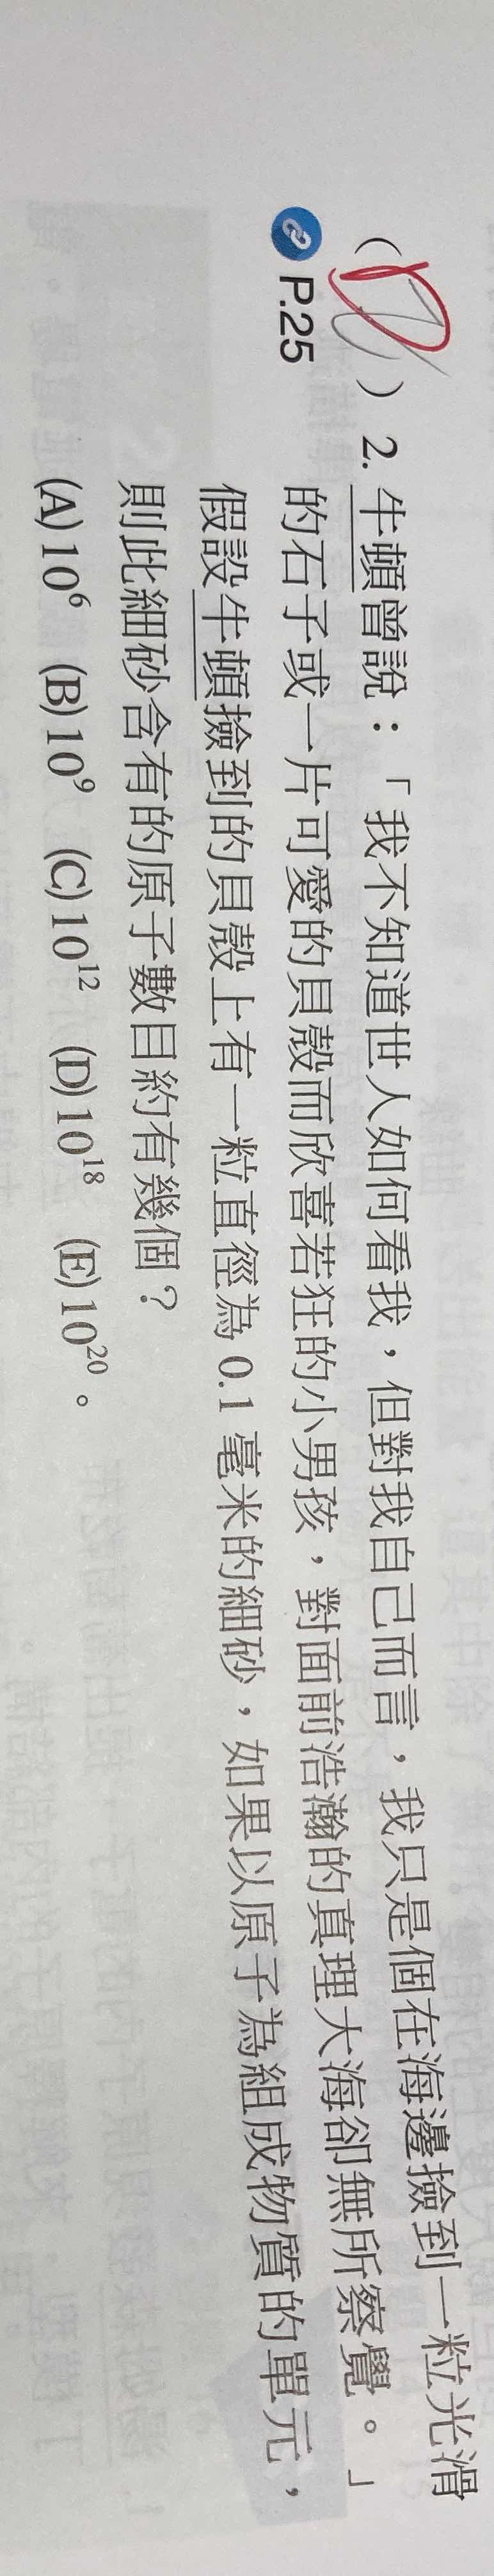 (D) 2. 牛頓曾說：「我不知道世人如何看我，但對我自己而言，我只是個在海邊撿到一粒光滑
P.25 的石子或一片可愛的貝殼而欣喜若狂的小男孩，對面前浩瀚的真理大海卻無所察覺。」
假設牛頓撿到的貝殼上有一粒直徑為 0.1 毫米的細砂，如果以原子為組成物質的單元，
則此細砂含有的原子數目約有幾個？
(A)10⁶ (B)10⁹ (C)10¹² (D)10¹⁸ (E)10²⁰。